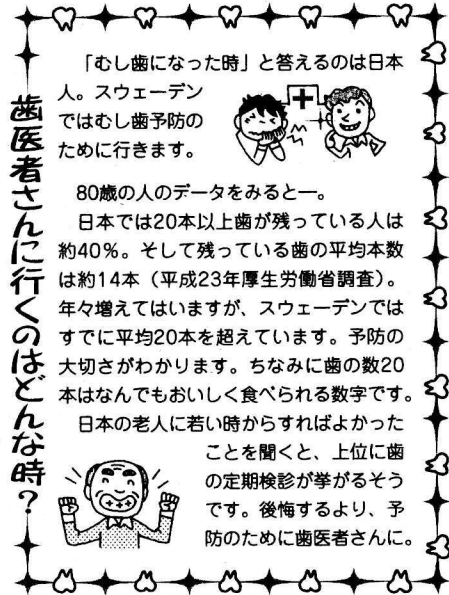 歯医者さんに行くのはどんな時？
「むし歯になった時」と答えるのは日本
人。スウェーデン
ではむし歯予防の
ために行きます。
80歳の人のデータをみると―。
日本では20本以上歯が残っている人は
約40％。そして残っている歯の平均本数
は約14本（平成23年厚生労働省調査）。
年々増えてはいますが、スウェーデンでは
すでに平均20本を超えています。予防の
大切さがわかります。ちなみに歯の数20
本はなんでもおいしく食べられる数字です。
日本の老人に若い時からすればよかった
ことを聞くと、上位に歯
の定期検診が挙がるそう
です。後悔するより、予
防のために歯医者さんに。